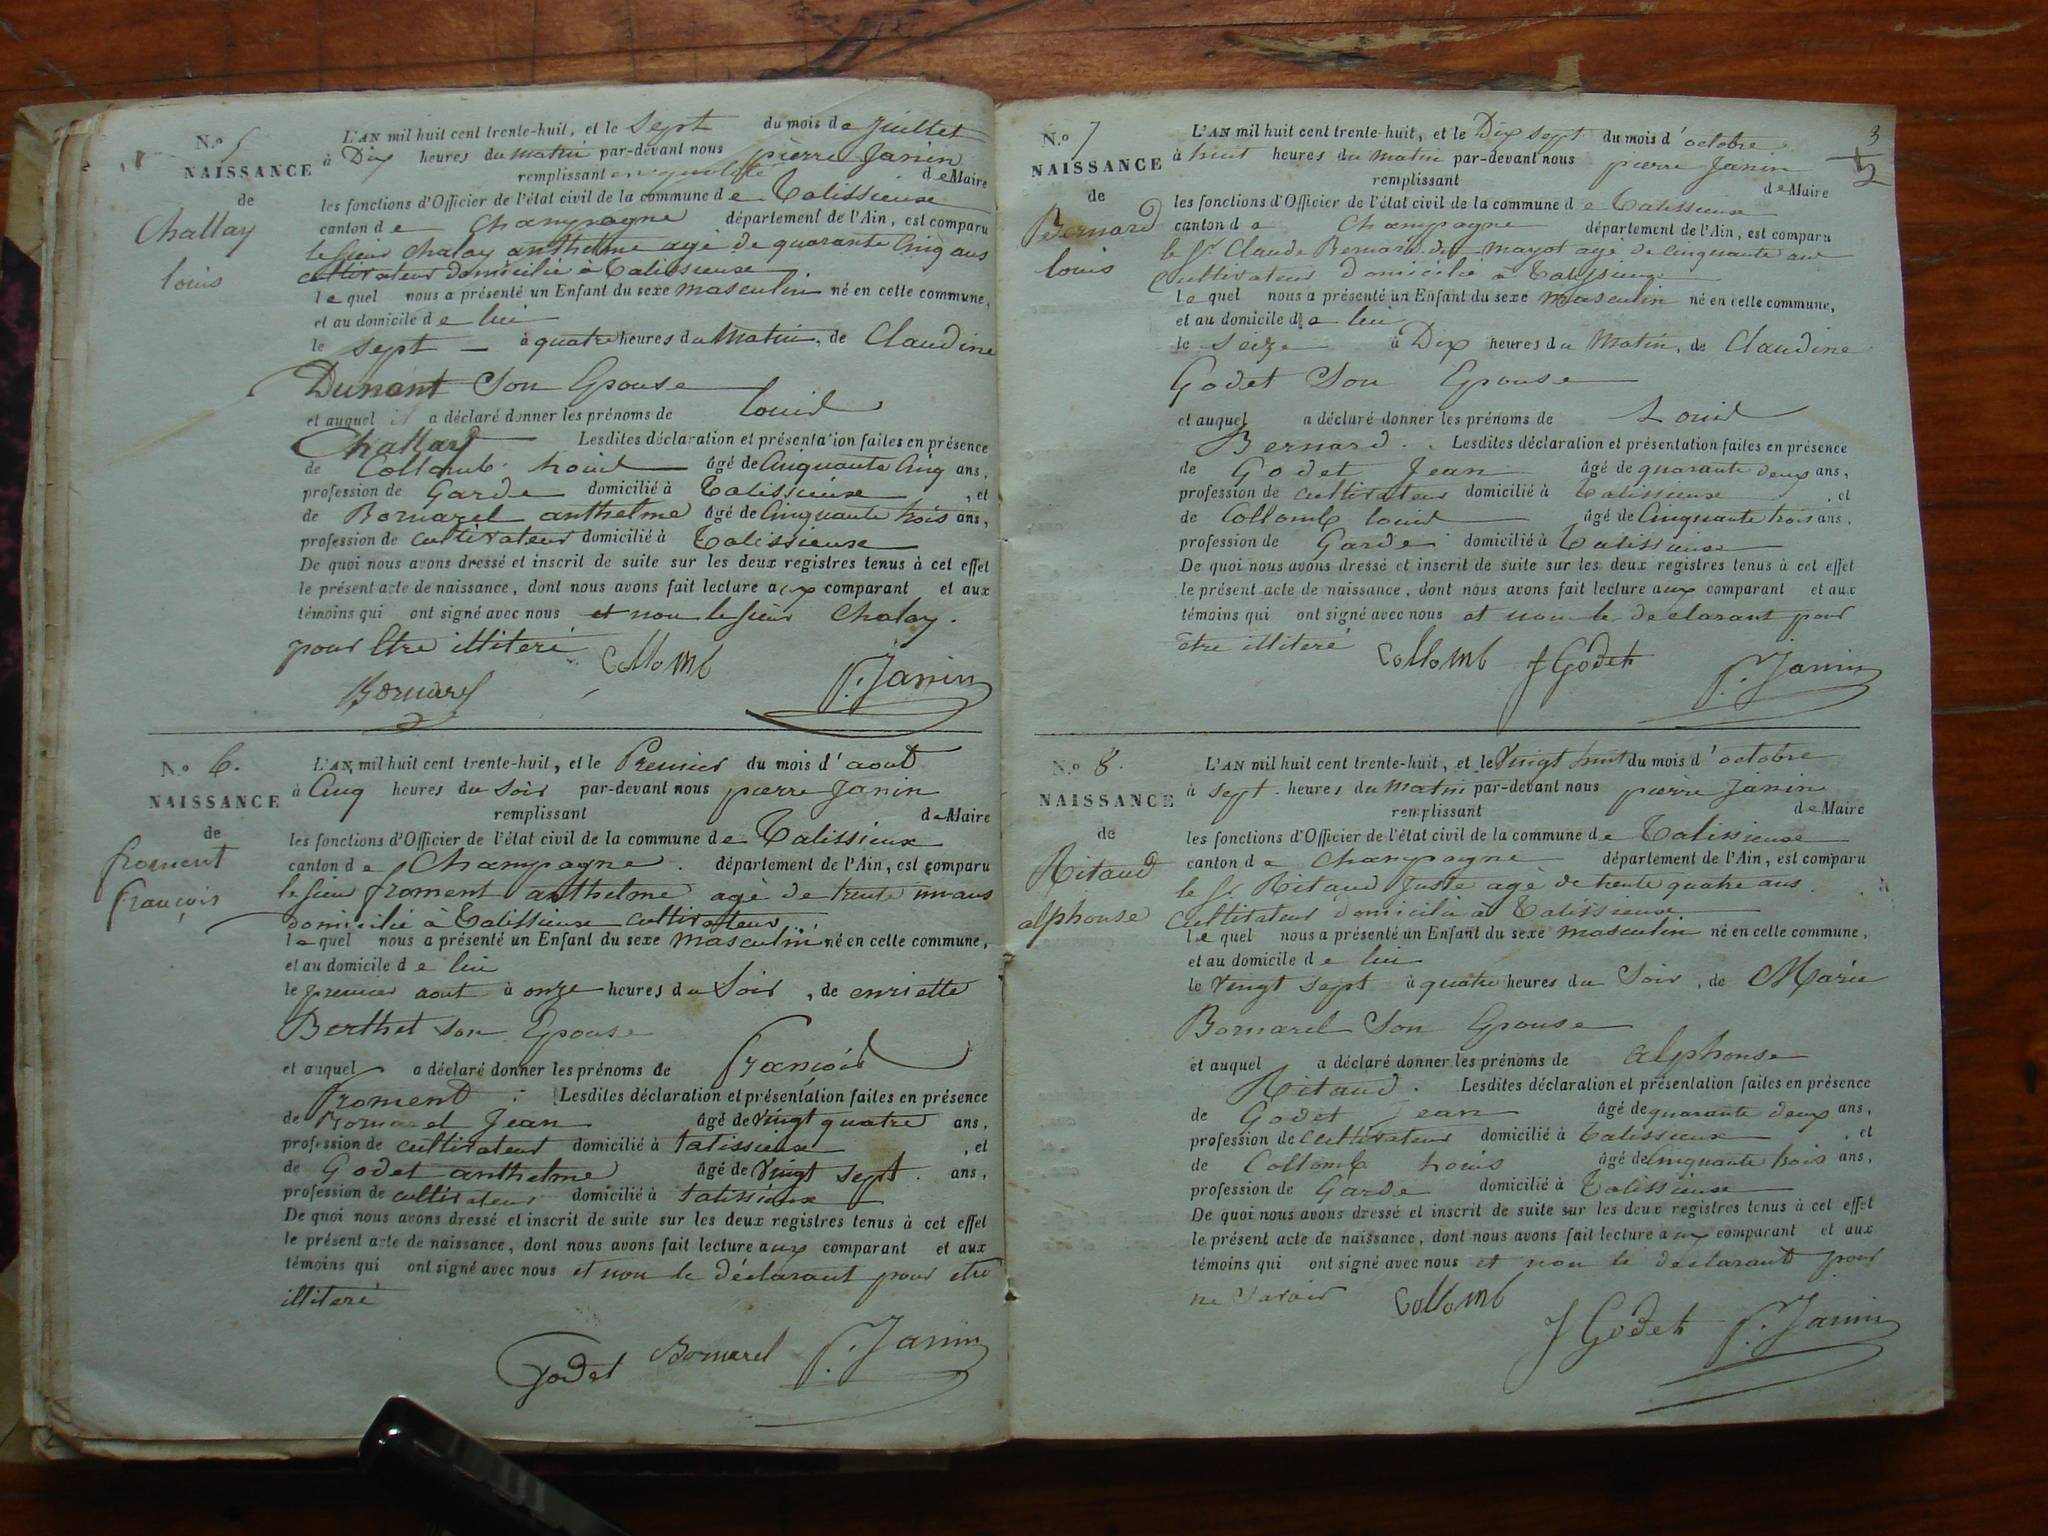 N.o 5
NAISSANCE
de
Challay
louis
L'AN mil huit cent trente-huit, et le Sept du mois de Juillet
à Dix heures du matin par-devant nous pierre Janin
remplissant en qualité de Maire
les fonctions d'Officier de l'état civil de la commune de Talissieux
canton de Champagne département de l'Ain, est comparu
le sieur chalay anthelme agé de quarante Cinq ans
cultivateur domicilié à Talissieux
lequel nous a présenté un Enfant du sexe masculin né en cette commune,
et au domicile de lui
le sept à quatre heures du Matin, de Claudine
Dunant Son Epouse
et auquel il a déclaré donner les prénoms de louis
Challay Lesdites déclaration et présentation faites en présence
de Collomb louis âgé de Cinquante Cinq ans,
profession de Garde domicilié à Talissieux, et
de Bornarel anthelme âgé de Cinquante trois ans,
profession de cultivateur domicilié à Talissieux
De quoi nous avons dressé et inscrit de suite sur les deux registres tenus à cet effet
le présent acte de naissance, dont nous avons fait lecture aux comparant et aux
témoins qui ont signé avec nous et non le sieur Chalay.
pour être illiteré
Collomb
Bornarel P. Janin
N.o 6.
NAISSANCE
de
froment
françois
L'AN mil huit cent trente-huit, et le Premier du mois d'aout
à Cinq heures du Soir par-devant nous pierre Janin
remplissant de Maire
les fonctions d'Officier de l'état civil de la commune de Talissieux
canton de Champagne. département de l'Ain, est comparu
le sieur froment anthelme agé de trente un ans
domicilié à Talissieux cultivateur
lequel nous a présenté un Enfant du sexe masculin né en cette commune,
et au domicile de lui
le premier aout à onze heures du Soir, de enriette
Berthet son Epouse
et auquel a déclaré donner les prénoms de françois
froment. Lesdites déclaration et présentation faites en présence
de Bornarel Jean âgé de vingt quatre ans,
profession de cultivateur domicilié à talissieux, et
de Godet anthelme âgé de vingt sept. ans,
profession de cultivateur domicilié à talissieux
De quoi nous avons dressé et inscrit de suite sur les deux registres tenus à cet effet
le présent acte de naissance, dont nous avons fait lecture aux comparant et aux
témoins qui ont signé avec nous et non le déclarant pour etre
illiteré
Godet Bornarel P. Janin
3
N.o 7
NAISSANCE
de
Bernard
louis
L'AN mil huit cent trente-huit, et le Dix sept du mois d'octobre
à huit heures du matin par-devant nous pierre Janin
remplissant de Maire
les fonctions d'Officier de l'état civil de la commune de Talissieux
canton de Champagne département de l'Ain, est comparu
le Sr. Claude Bernard dit mayot agé de Cinquante ans
Cultivateur domicilié à Talissieux
lequel nous a présenté un Enfant du sexe masculin né en cette commune,
et au domicile de lui
le seize à Dix heures du Matin, de Claudine
Godet Son Epouse
et auquel a déclaré donner les prénoms de Louis
Bernard. Lesdites déclaration et présentation faites en présence
de Godet Jean âgé de quarante deux ans,
profession de cultivateur domicilié à Talissieux, et
de Collomb louis âgé de Cinquante trois ans,
profession de Garde domicilié à Talissieux
De quoi nous avons dressé et inscrit de suite sur les deux registres tenus à cet effet
le présent acte de naissance, dont nous avons fait lecture aux comparant et aux
témoins qui ont signé avec nous et non le declarant pour
etre illiteré Collomb J Godet P. Janin
N.o 8.
NAISSANCE
de
Ritaud
alphonse
L'AN mil huit cent trente-huit, et le Vingt huit du mois d'octobre
à Sept. heures du matin par-devant nous pierre Janin
remplissant de Maire
les fonctions d'Officier de l'état civil de la commune de Talissieux
canton de Champagne département de l'Ain, est comparu
le Sr. Ritaud Juste agé de trente quatre ans.
Cultivateur domicilié à Talissieux
lequel nous a présenté un Enfant du sexe masculin né en cette commune,
et au domicile de lui
le vingt sept à quatre heures du Soir, de Marie
Bornarel Son Epouse
et auquel a déclaré donner les prénoms de alphonse
Ritaud. Lesdites déclaration et présentation faites en présence
de Godet Jean âgé de quarante deux ans,
profession de Cultivateur domicilié à Talissieux, et
de Collomb Louis âgé de Cinquante trois ans,
profession de Garde domicilié à Talissieux
De quoi nous avons dressé et inscrit de suite sur les deux registres tenus à cet effet
le présent acte de naissance, dont nous avons fait lecture aux comparant et aux
témoins qui ont signé avec nous et non le declarant pour
ne Savoir Collomb
J Godet P. Janin